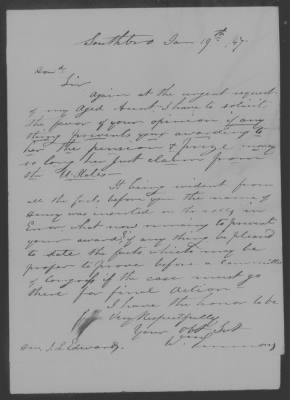 Southboro Jan 19th 47.
Hon.
Sir
Again at the urgent request
of my Aged Aunt I have to solicit
the favor of your opinion if any
thing prevents your awarding to
her the pension & prize money
so long her just claim from
the U. States
It being evident from
all the facts before you the name of
was inserted on the rolls in
Error, what now remains to prevent
your award, & if any thing be pleased
to state the facts which may be
proper to prove before a Committee
of Congress if the case must go
there for final action
I have the honor to be
Very Respectfully
Your obt Svt
Hon. J. L. Edwards. W.